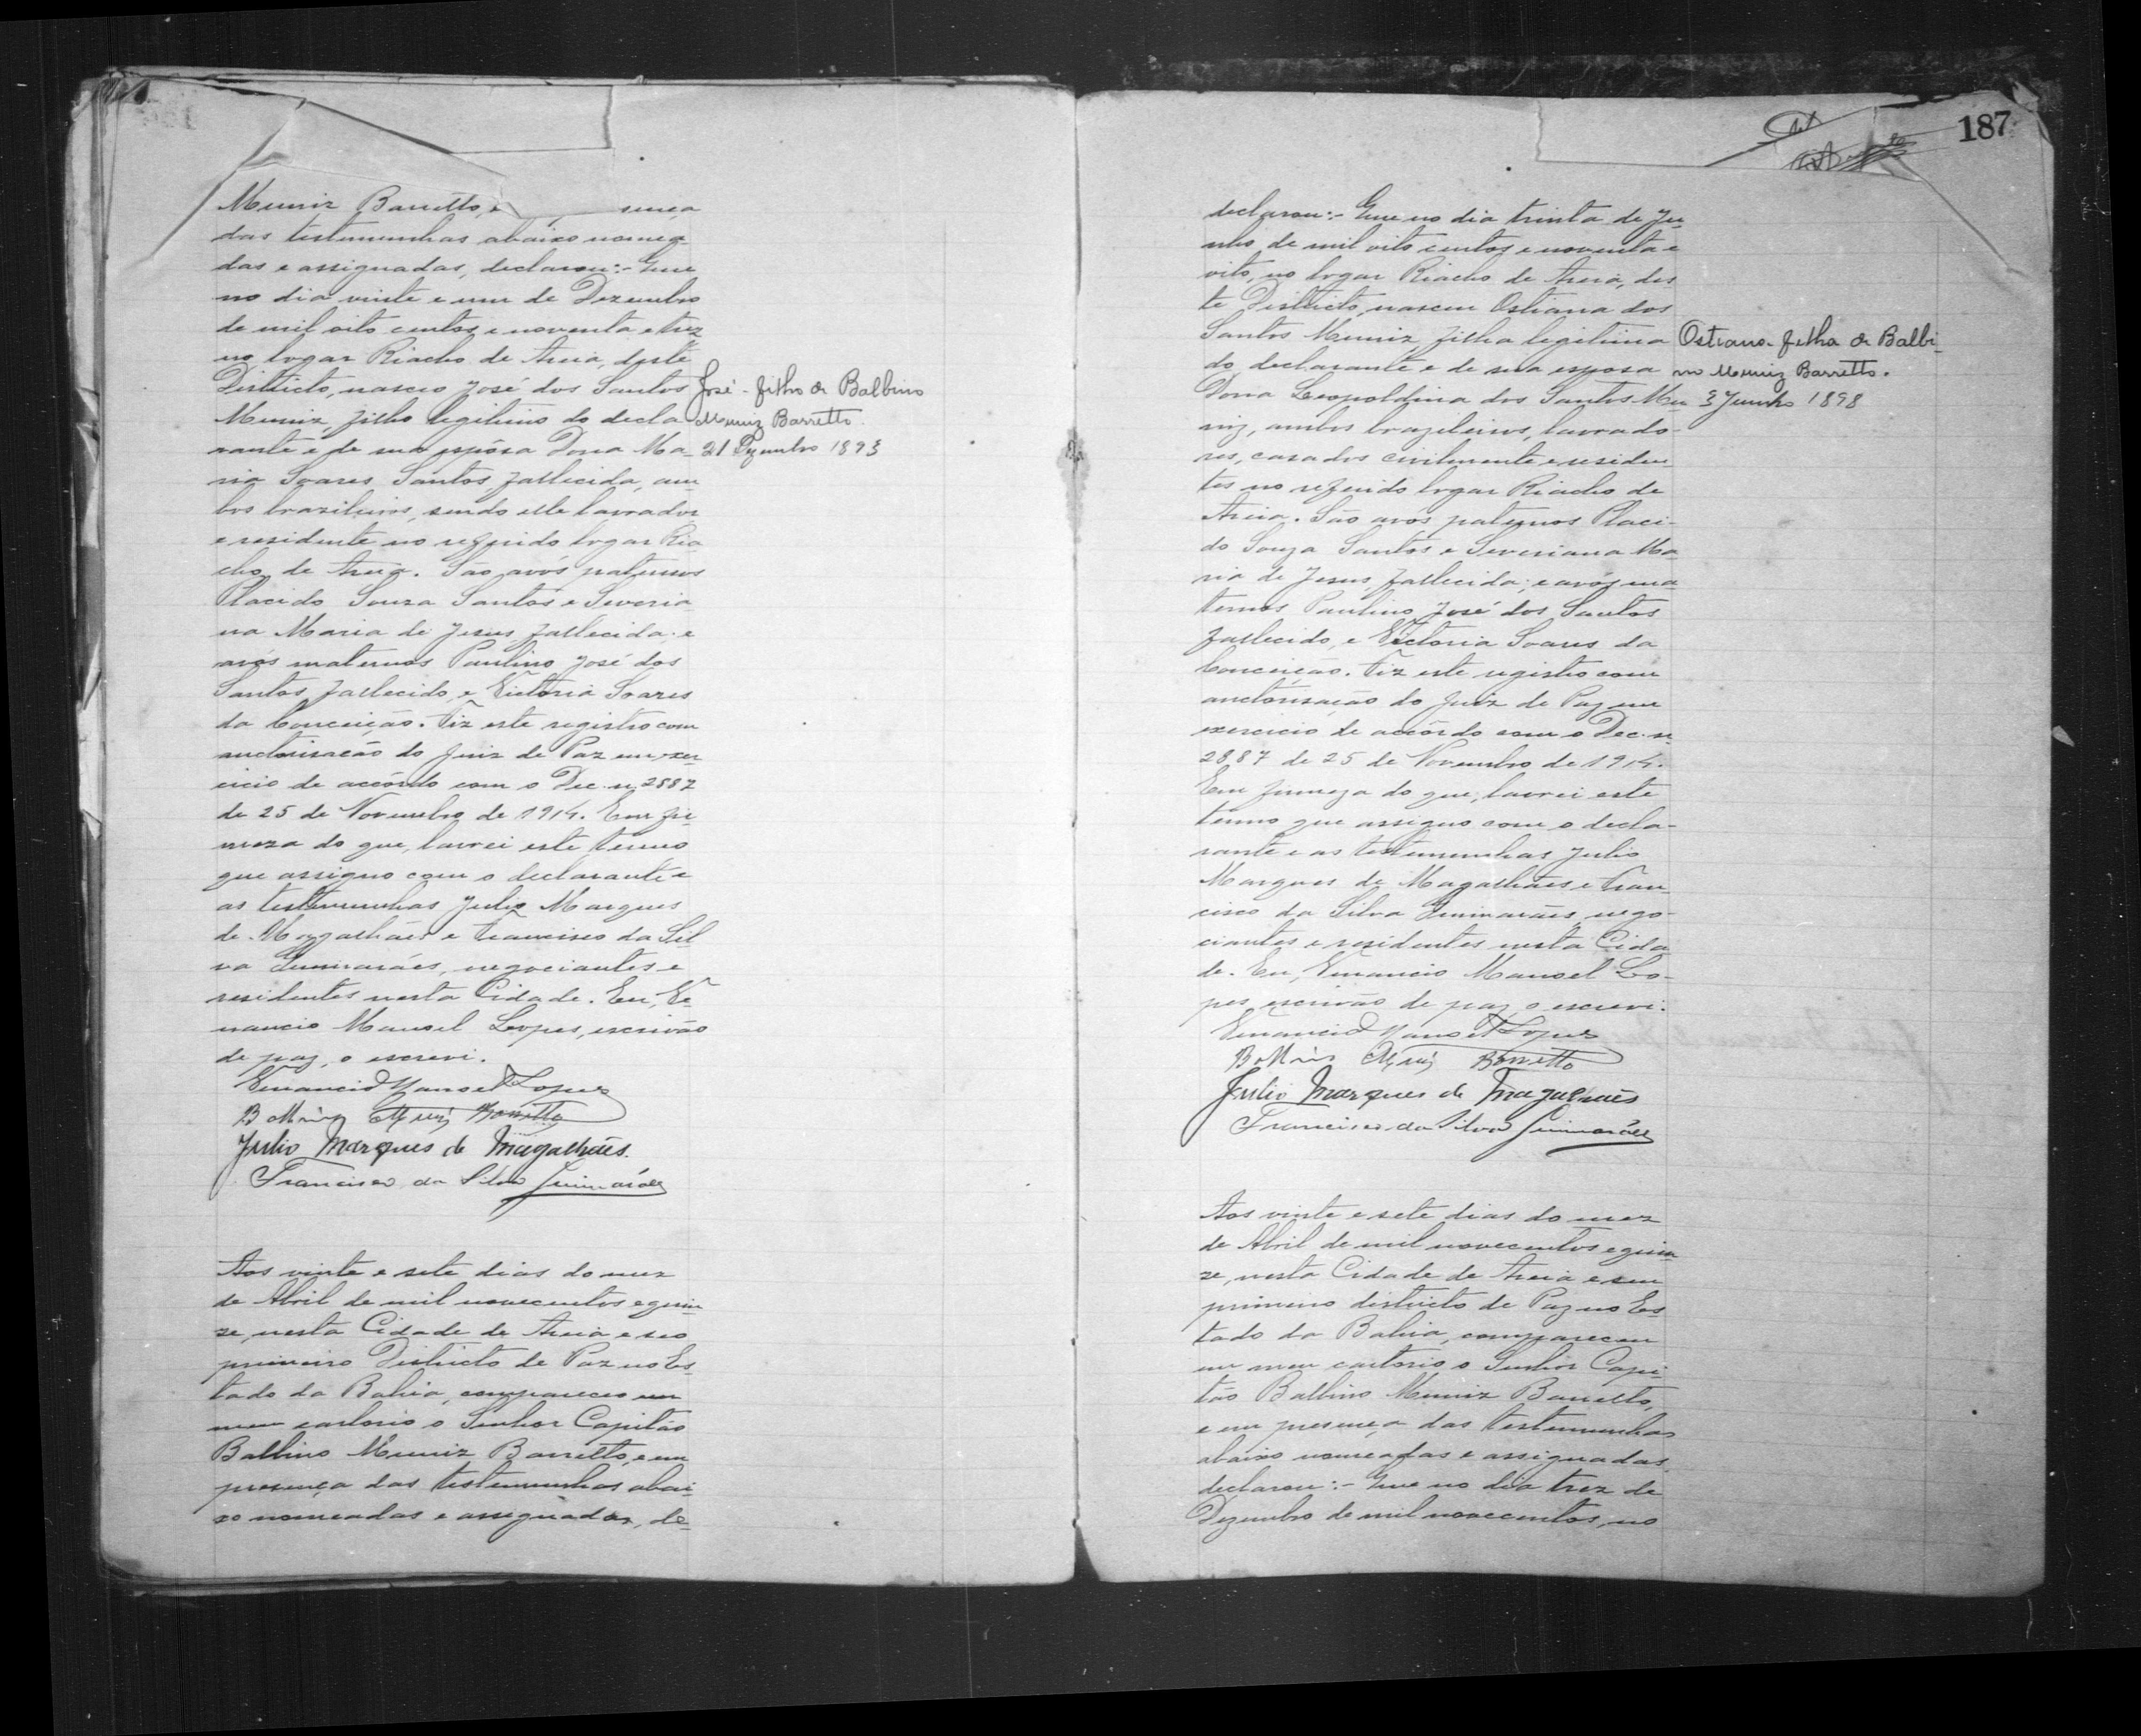 Muniz Barretto, e sença
das testemunhas abaixo nomea-
das e assignadas, declarou:- Que
no dia vinte e um de Dezembro
de mil oito centos e noventa e trez
no logar Riacho de Areia, deste
Districto, nasceo José dos Santos
Muniz, filho legitimo do decla
rante e de sua espósa Dona Ma-
ria Soares Santos, fallecida, am
bos brazileiros, sendo elle lavrador
e residente no referido logar Ria
cho de Areia. São avós paternos
Placido Souza Santos e Severia
na Maria de Jesus, fallecida; e
avós maternos Paulino José dos
Santos, fallecido, e Victoria Soares
da Conceição. Fiz este registro com
auctorisacão do Juiz de Paz em exer
cicio de accôrdo com o Dec. n. 2887
de 25 de Novembro de 1914. Em fir
meza do que, lavrei este termo
que assigno com o declarante e
as testemunhas Julio Marques
de Magalhães e Francisco da Sil
va Guimarães, negociantes e
residentes nesta Cidade. Eu, Ve
nancio Manoel Lopes, escrivão
de paz, o escrevi.
Venancio Manoel Lopes
Balbino Muniz Barretto
Julio Marques de Magalhães.
Francisco da Silva Guimarães
José - filho de Balbino
Muniz Barretto.
21 Dezembro 1893
Aos vinte e sete dias do mez
de Abril de mil novecentos e quin
ze, nesta Cidade de Areia e seo
primeiro Districto de Paz no Es-
tado da Bahia, compareceo em
meu cartorio o Senhor Capitão
Balbino Muniz Barretto, e em
presença das testemunhas abai-
xo nomeadas e assignadas, de-
187
declarou:- Que no dia trinta de Ju
nho de mil oito centos e noventa e
oito, no logar Riacho de Areia, des
te Districto, nasceu Ostiana dos
Santos Muniz, filha legitima
do declarante e de sua esposa
Dona Leopoldina dos Santos Mu
niz, ambos brazileiros, lavrado-
res, casados civilmente e residen
tes no referido logar Riacho de
Areia. São avós paternos Placi-
do Souza Santos e Severiana Ma
ria de Jesus, fallecida; e avós ma
ternos Paulino José dos Santos
fallecido, e Victoria Soares da
Conceição. Fiz este registro com
auctorisação do Juiz de Paz em
exercicio de accôrdo com o Dec. n.
2887 de 25 de Novembro de 1914.
Em firmeza do que, lavrei este
termo que assigno com o decla-
rante e as testemunhas Julio
Marques de Magalhães e Fran
cisco da Silva Guimarães, nego-
ciantes e residentes nesta Cida
de. Eu, Venancio Manoel Lo-
pes, escrivão de paz, o escrevi.
Venancio Manoel Lopes
Balbino Muniz Barretto
Julio Marques de Magalhães
Francisco da Silva Guimarães
Ostiana - filha de Balbi-
no Muniz Barretto.
3 Junho 1898
Aos vinte e sete dias do mez
de Abril de mil novecentos e quin
ze, nesta Cidade de Areia e seu
primeiro districto de Paz no Es
tado da Bahia, compareceu
em meu cartorio o Senhor Capi
tão Balbino Muniz Barretto,
e em presença das testemunhas
abaixo nomeadas e assignadas,
declarou:- Que no dia trez de
Dezembro de mil novecentos, no